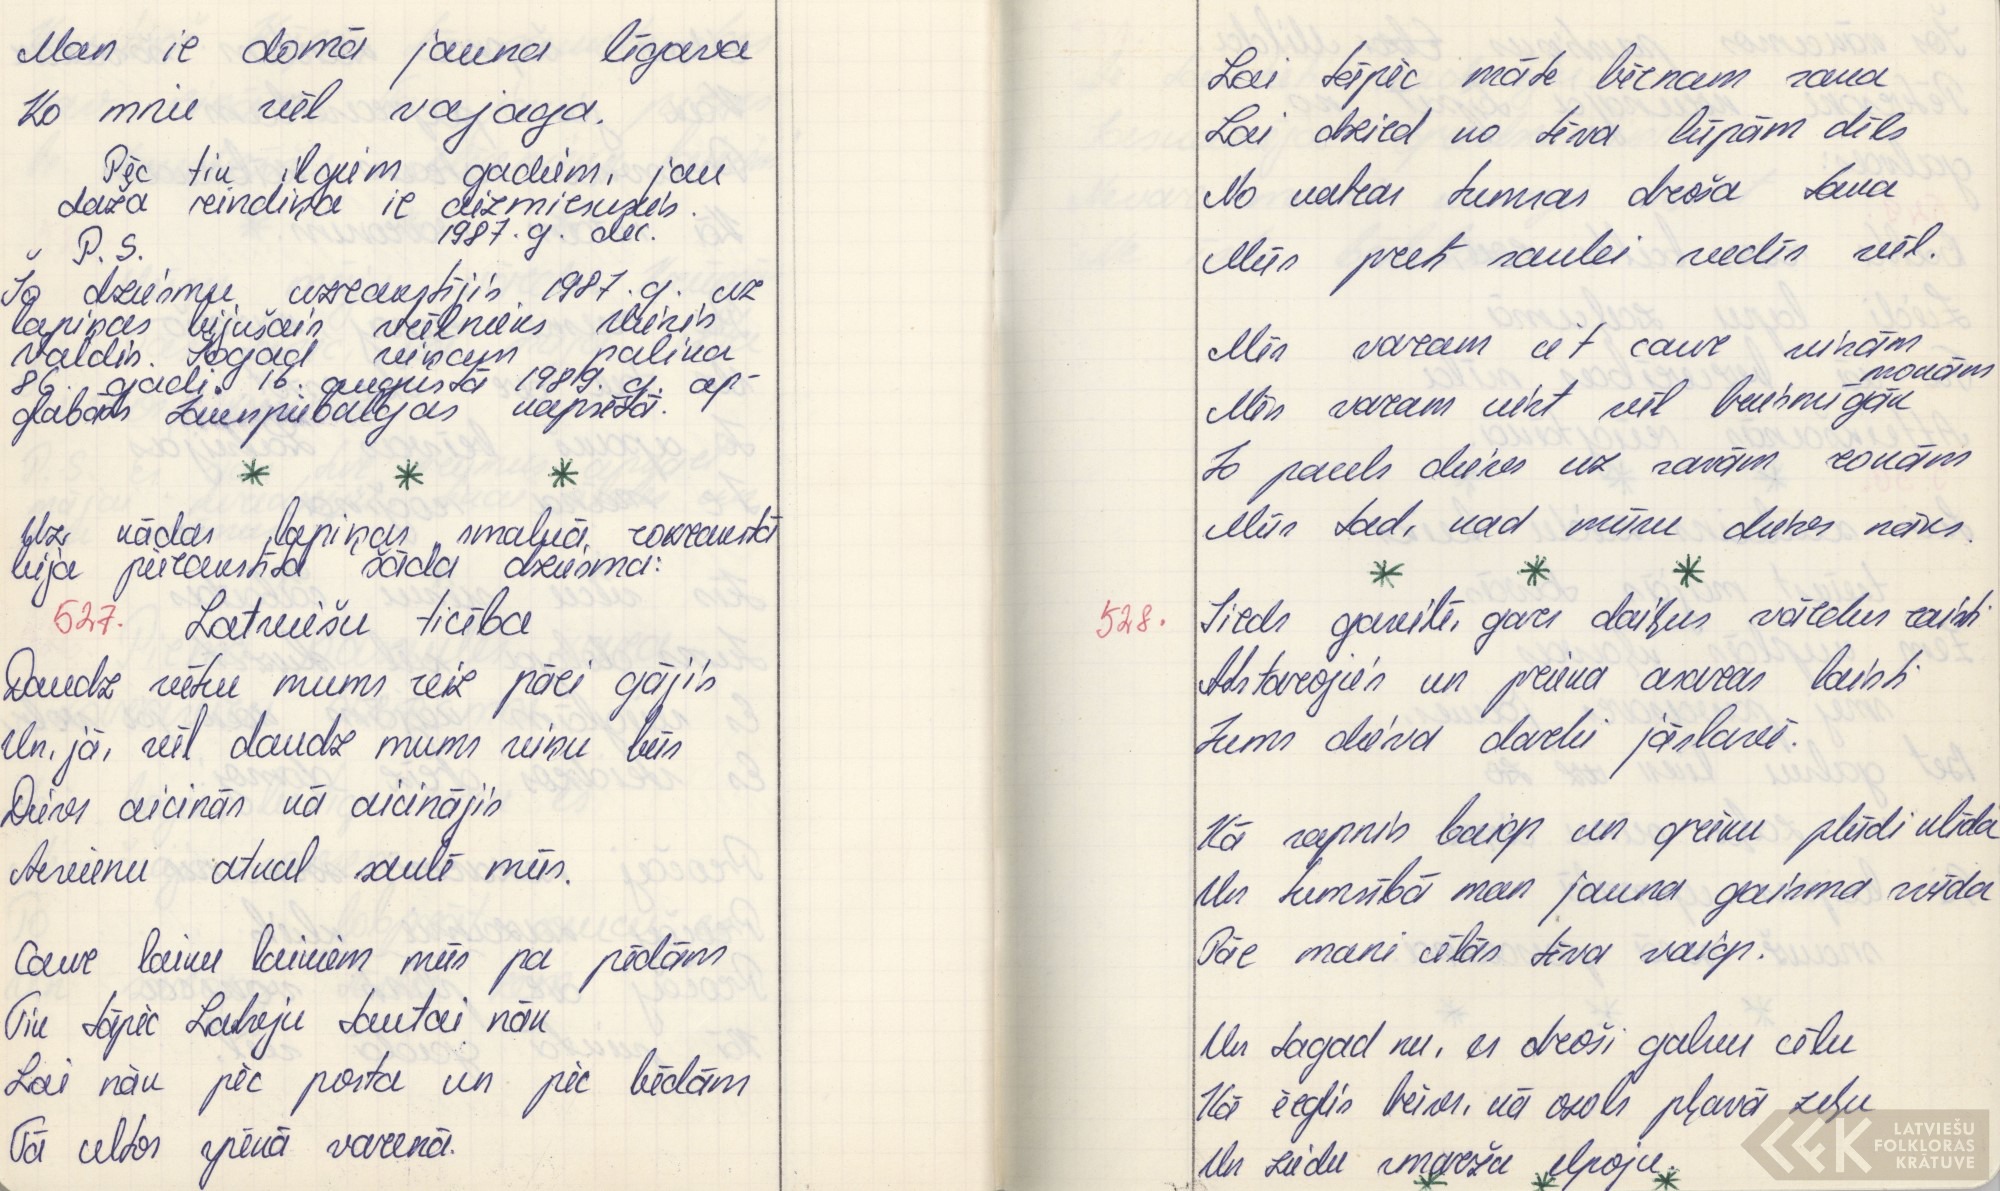 Man ir domā jauna līgava
Ko mīļu vēl vajaga.
Pēc tik ilgiem gadiem, jau
daža rindiņa ir aizmirsusies.
1987. g. dec.
P. S.
Šo dziesmu uzrakstījis 1987. g. uz
lapiņas bijušais
Valdis. Šogad viņam palika
86. gadi. 16. augustā 1989. g. ap-
glabāts Jaunpiebalgas kapsētā.
* * *
Uz kādas lapiņas smalkā rokrakstā
bija pierakstīta šāda dziesma:
527. Latviešu ticība
Daudz vētru mums reiz pāri gājis
Un, jā, vēl daudz mums viņu būs
Dievs aicinās kā aicinājis
Arvienu atkal saulē mūs.
Caur laiku laikiem mūs pa pēdām
Tik tāpēc Latvju tautai nāk
Lai nāk pēc posta un pēc bēdām
Tā celtos spēkā varenā.
Lai tāpēc māte bērnam sauka
Lai dzird no tēva lūpām dēls
No katras tumsas droša tauka
Mūs pretī saulei vedīs vēl.
Mēs varam iet caur visām
mokām
Mēs varam kist vēl briesmīgāk
To pacels dievs uz savām rokām
Mūs tad, kad mūsu dievs nāks.
* * *
528. Sirds gavilē, gars daiļus vārdus raisti
Atstarojies un prieka asaras laisti
Jums dieva darbi jāslavē.
Kā sapnis baigs un grēku plūdi klīda
Un tumsībā man jauna gaisma vīda
Pār mani cēlās tēva vaigs.
Un tagad nu, es droši galvu ceļu
Kā ērglis brīvs, kā ozols pļavā zeļu
Un ziedu smaržu elpoju.
* * *
LATVIEŠU
FOLKLORAS
KRĀTUVE